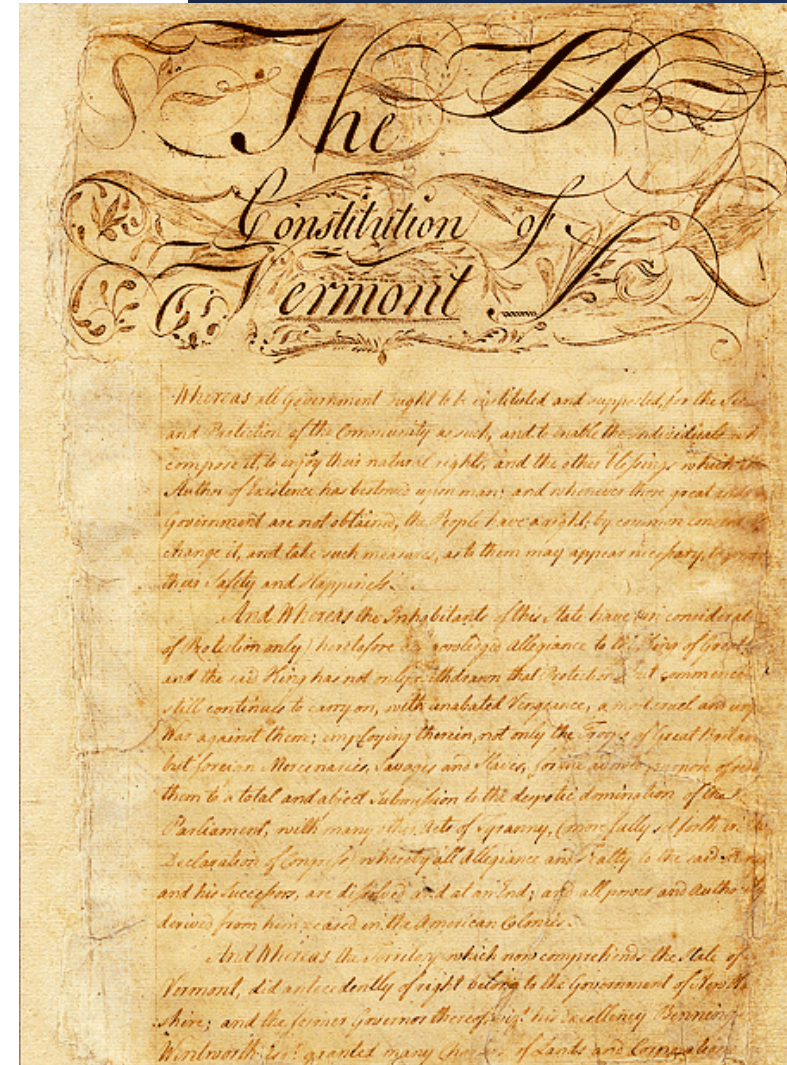 The
Constitution of
Vermont
Whereas all Government ought to be instituted and supported, for the
and Protection of the Community as such, and to enable the individuals
compose it, to enjoy their natural rights, and the other blessings which
Author of Existence has bestowed upon man; and whenever those great
Government are not obtained, the People have a right, by common consent
change it, and take such measures, as to them may appear necessary, to
their Safety and Happiness.
And Whereas the Inhabitants of this State have (in
of Protection only) heretofore acknowledged Allegiance to the King of Great
and the said King has not only withdrawn that Protection but commenced
still continues to carry on, with unabated Vengeance, a most cruel and
War against them; employing therein, not only the Troops of Great Britain
but foreign Mercenaries, Savages and Slaves, for the avowed purpose of
them to a total and abject Submission to the despotic domination of the
Parliament, with many other Acts of Tyranny, (more fully set forth in the
Declaration of Congress) whereby all Allegiance and Fealty to the said King
and his Successors, are dissolved and at an End; and all power and Authority
derived from him ceased in the American Colonies.
And Whereas the Territory which now comprehends the State of
Vermont, did antecedently of right belong to the Government of New
shire; and the former Governor thereof, viz. his Excellency Benning
Wentworth Esqr. granted many Charters of Lands and Corporations